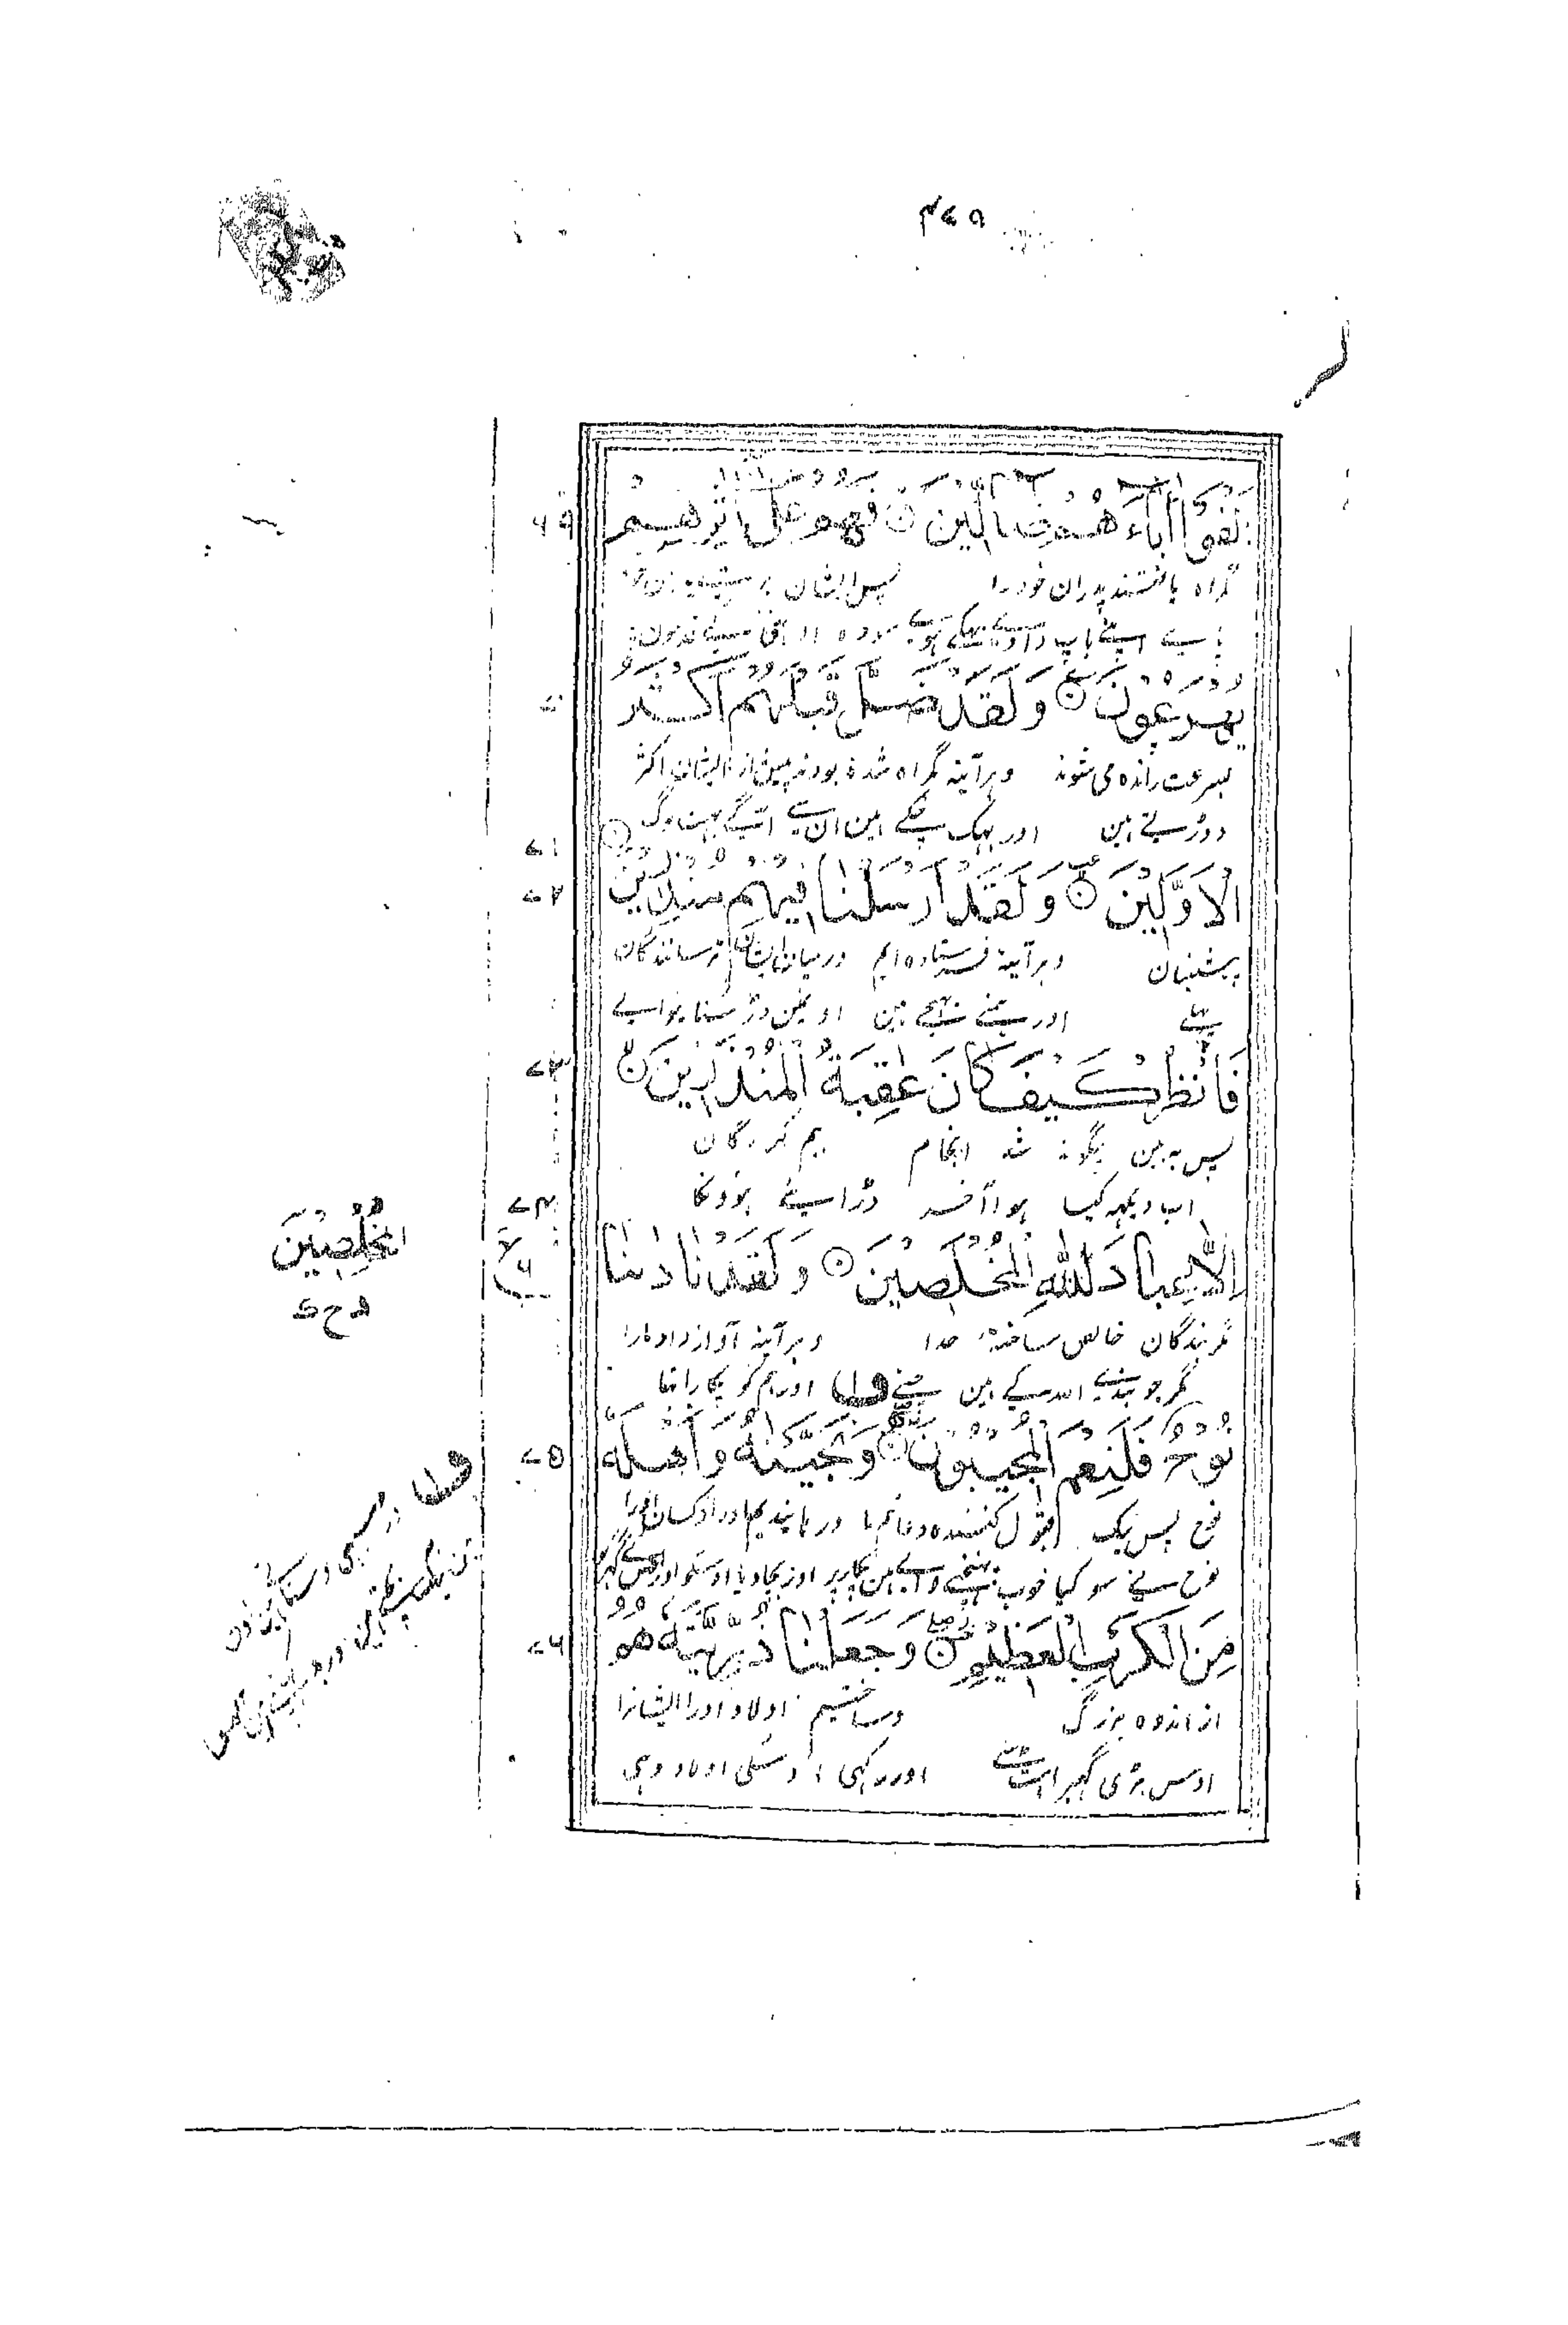 اَلْفَوْا اٰبَآءَهُمْ ضَآلِّيْنَ ۝ فَهُمْ عَلٰٓى اٰثٰرِهِمْ
گمراه یافتند پدران خود را پس ایشان بر
اپنے باپ دادے بہکے ہوئے سو وہ
يُهْرَعُوْنَ ۝ وَلَقَدْ ضَلَّ قَبْلَهُمْ اَكْثَرُ
بسرعت رانده می شوند و هر آینه گمراه شده بودند پیش از ایشان اکثر
دوڑتے ہین اور بہک چکے ہین ان سے آگے بہت لوگ
۷۱
الْاَوَّلِيْنَ ۝ وَلَقَدْ اَرْسَلْنَا فِيْهِمْ مُّنْذِرِيْنَ ۝
۷۲
پیشینیان و هر آینه فرستاده ایم درمیان ایشان ترسانندگان
پہلے اور ہمنے بھیجے ہین اونمین ڈر سنانیوالے
فَانْظُرْ كَيْفَ كَانَ عٰقِبَةُ الْمُنْذَرِيْنَ ۝
۷۳
پس به بین چگونه شد انجام بیم کردگان
اب دیکہہ کیسا ہوا آخر ڈرائے ہوونکا
۷۴
اِلَّا عِبَادَ اللّٰهِ الْمُخْلَصِيْنَ ۝ وَلَقَدْ نَادٰىنَا
المُخْلِصِيْنَ
مگر بندگان خالص ساختهٔ خدا و هر آینه آواز داد مارا
مگر جو بندے اللہ کے ہین چنے ف۱ اور ہمکو پکارا تہا
نُوْحٌ فَلَنِعْمَ الْمُجِيْبُوْنَ ۝ وَنَجَّيْنٰهُ وَاَهْلَهٗ
۷۵
نوح پس نیک قبول کننده دعائیم ما و رهانیدیم اورا و کسان اورا
نوح نے سو کیا خوب پہنچنے والے ہین پکار پر اور بچا دیا اوسکو اور اوسکے گہر کو
مِنَ الْكَرْبِ الْعَظِيْمِ ۝ وَجَعَلْنَا ذُرِّيَّتَهٗ هُمُ
۷۶
از اندوه بزرگ و ساختیم اولاد اورا ایشانرا
اوس بڑی گہبراہٹ سے اور رکہی اوسکی اولاد وہی
ف۱